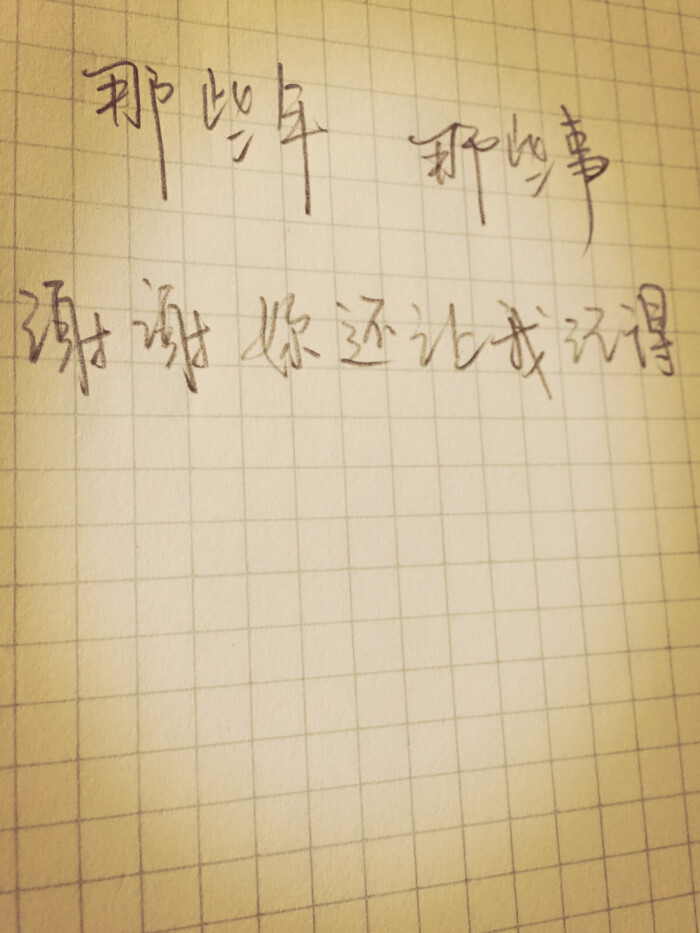 那些年 那些事
谢谢你还让我记得